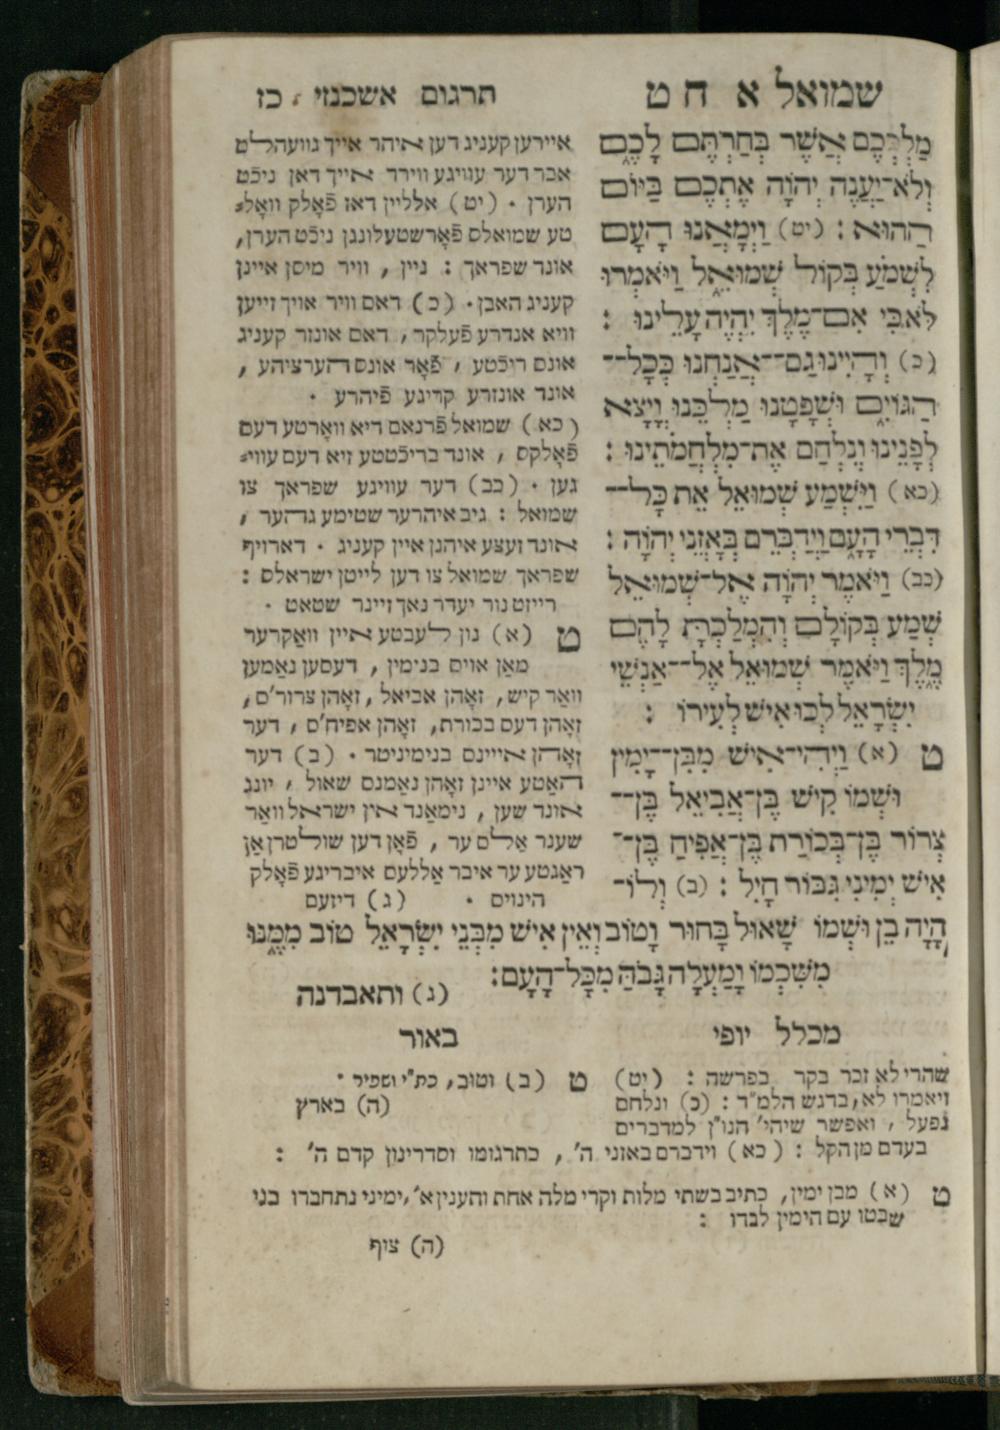 שמואל א ח ט
מַלְכְּכֶם אֲשֶׁר בְּחַרְתֶּם לָכֶם
וְלֹא־יַעֲנֶה יְהוָֹה אֶתְכֶם בַּיּוֹם
הַהוּא : (יט) וַיְמָאֲנוּ הָעָם
לִשְׁמֹעַ בְּקוֹל שְׁמוּאֵל וַיֹּאמְרוּ
לֹּא כִּי אִם־מֶלֶךְ יִהְיֶה עָלֵינוּ :
(כ) וְהָיִינוּ גַם־אֲנַחְנוּ כְּכָל־
הַגּוֹיִם וּשְׁפָטָנוּ מַלְכֵּנוּ וְיָצָא
לְפָנֵינוּ וְנִלְחַם אֶת־מִלְחֲמֹתֵינוּ :
(כא) וַיִּשְׁמַע שְׁמוּאֵל אֵת כָּל־
דִּבְרֵי הָעָם וַיְדַבְּרֵם בְּאָזְנֵי יְהוָֹה :
(כב) וַיֹּאמֶר יְהוָֹה אֶל־שְׁמוּאֵל
שְׁמַע בְּקוֹלָם וְהִמְלַכְתָּ לָהֶם
מֶלֶךְ וַיֹּאמֶר שְׁמוּאֵל אֶל־אַנְשֵׁי
יִשְׂרָאֵל לְכוּ אִישׁ לְעִירוֹ :
ט (א) וַיְהִי־אִישׁ מִבִּן־יָמִין
וּשְׁמוֹ קִישׁ בֶּן־אֲבִיאֵל בֶּן־
צְרוֹר בֶּן־בְּכוֹרַת בֶּן־אֲפִיחַ בֶּן־
אִישׁ יְמִינִי גִּבּוֹר חָיִל : (ב) וְלוֹ־
הָיָה בֵן וּשְׁמוֹ שָׁאוּל בָּחוּר וָטוֹב וְאֵין אִישׁ מִבְּנֵי יִשְׂרָאֵל טוֹב מִמֶּנּוּ
מִשִּׁכְמוֹ וָמַעְלָה גָּבֹהַּ מִכָּל־הָעָם:
(ג) ותאבדנה
תרגום אשכנזי . כז
איירען קעניג דען איהר אייך גוועהלט
אבר דער עוויגע ווירד אייך דאן ניכֿט
הערן . (יט) אלליין דאז פֿאָלק וואָל=
טע שמואלס פֿאָרשטעלונגן ניכֿט הערן,
אונד שפראך : ניין , וויר מיסן איינן
קעניג האבן. (כ) דאם וויר אויך זייען
וויא אנדרע פֿעלקר, דאם אונזר קעניג
אונס ריכֿטע , פֿאָר אונס הערציהע ,
אונד אונזרע קריגע פֿיהרע .
(כא) שמואל פֿרנאם דיא וואָרטע דעס
פֿאָלקס , אונד בריכֿטטע זיא דעם עווי=
גען . (כב) דער עוויגע שפראך צו
שמואל : גיב איהרער שטימע געהער ,
אונד זעצע איהנן איין קעניג . דארויף
שפראך שמואל צו דען לייטן ישראלס :
רייזט נור יעדר נאך זיינר שטאט .
ט (א) נון לעבטע איין וואַקרער
מאַן אויס בנימין , דעסען נאַמען
וואַר קיש, זאָהן אביאל, זאָהן צרור'ס,
זאָהן דעס בכורת, זאָהן אפיח'ס , דער
זאָהן איינס בנימיניטר . (ב) דער
האַטע איינן זאָהן נאַמנס שאול , יונג
אונד שען , נימאַנד אין ישראל וואַר
שענר אַלס ער , פֿאָן דען שולטרן אַן
ראַגטע ער איבר אַללעס איבריגע פֿאָלק
הינויס . (ג) דיזעם
מכלל יופי
שהרי לא זכר בקר בפרשה : (יט)
ויאמרו לא, בדגש הלמ"ד : (כ) ונלחם
נפעל , ואפשר שיהי' הנו"ן למדברים
בעדם מן הקל : (כא) וידברם באזני ה' , כתרגומו וסדרינון קדם ה' :
ט (א) מבן ימין, כתיב בשתי מלות וקרי מלה אחת והענין א', ימיני נתחברו בני
שבטו עם הימין לבדו :
(ה) צוף
באור
ט (ב) וטוב, כת"י ושפיר .
(ה) בארץ